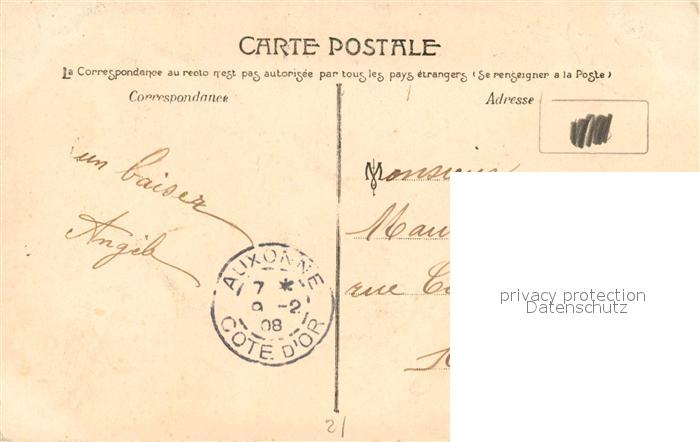 CARTE POSTALE
La Correspondance au recto n'est pas autorisée par tous les pays étrangers (Se renseigner a la Poste)
Correspondance
Adresse
un baiser
Angèle
Monsieur
Mau
rue
AUXONNE
7 *
9 -2
08
COTE D'OR
privacy protection
Datenschutz
21